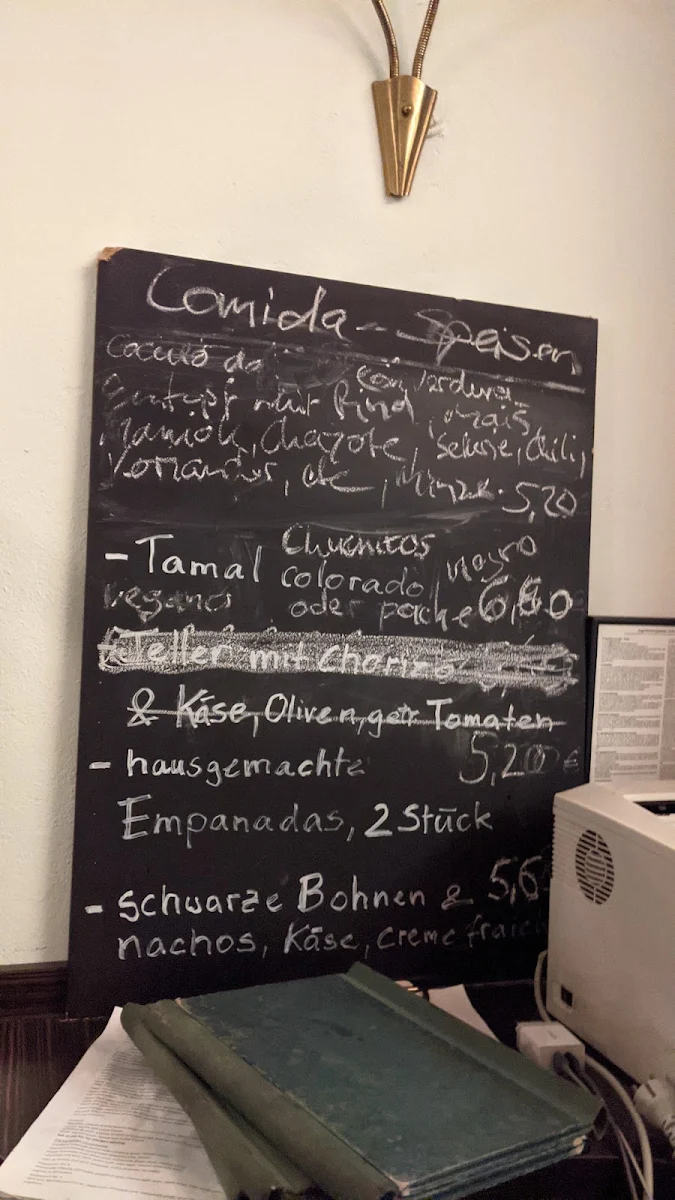 Comida - Speisen
Cocido de
con verdura
Eintopf mit Rind, Mais
Maniok, Chayote, Sellerie, Chili,
Koriander, etc, Minze. 5,20
- Tamal Chuchitos negro
colorado
vegano oder pache 6,80
Teller mit Chorizo
& Käse, Oliven, getr Tomaten
- hausgemachte 5,20 €
Empanadas, 2 Stück
- schwarze Bohnen & 5,6
nachos, Käse, creme fraich